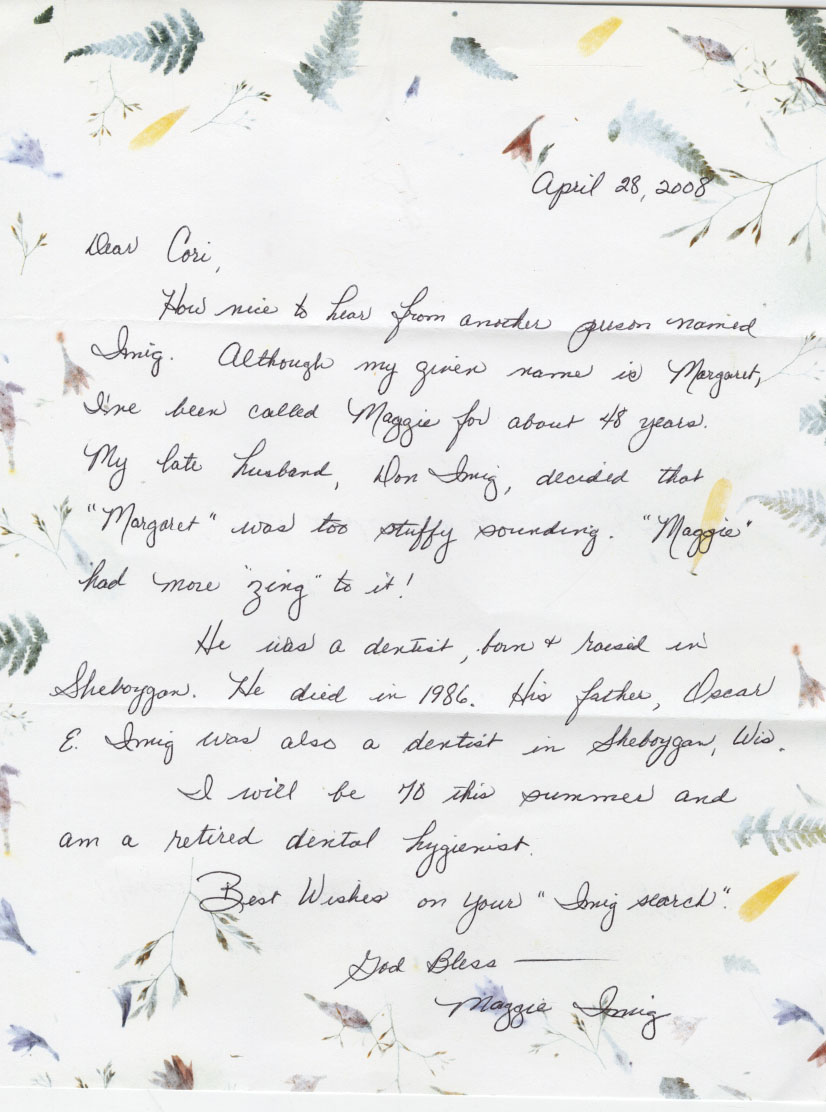 April 28, 2008
Dear Cori,
How nice to hear from another person named
Imig. Although my given name is Margaret,
I've been called Maggie for about 48 years.
My late husband, Don Imig, decided that
"Margaret" was too stuffy sounding. "Maggie"
had more "zing" to it!
He was a dentist, born & raised in
Sheboygan. He died in 1986. His father, Oscar
E. Imig was also a dentist in Sheboygan, Wis.
I will be 70 this summer and
am a retired dental hygienist.
Best Wishes on your "Imig search".
God Bless —
Maggie Imig